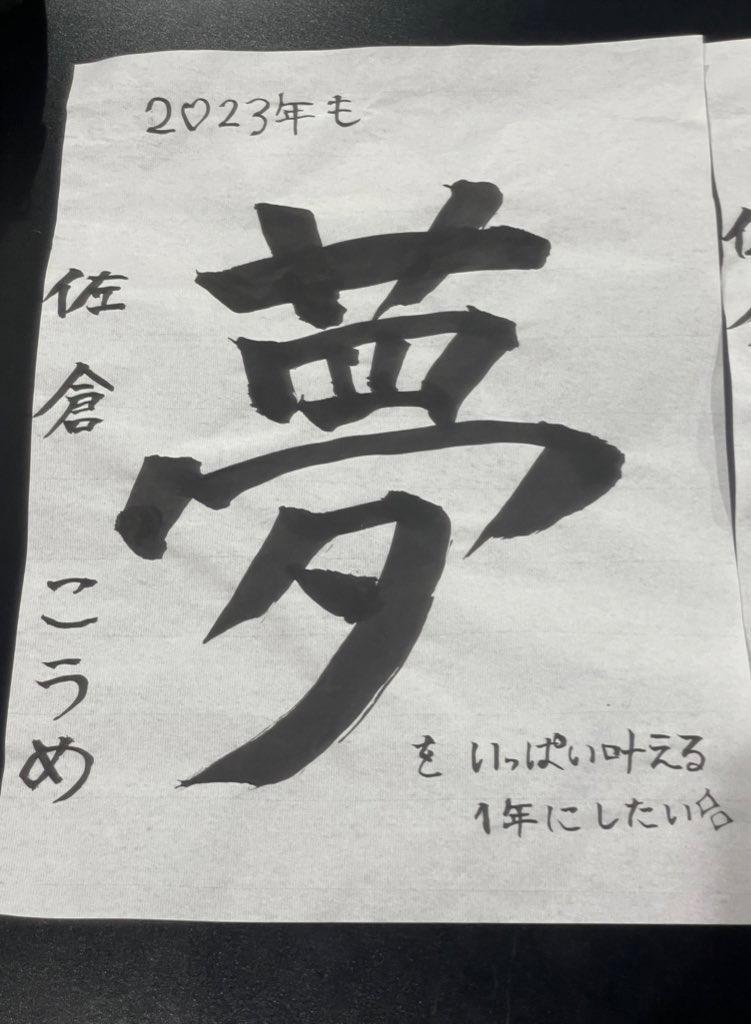 2♡23年も
夢
をいっぱい叶える
1年にしたい✨
佐倉こうめ